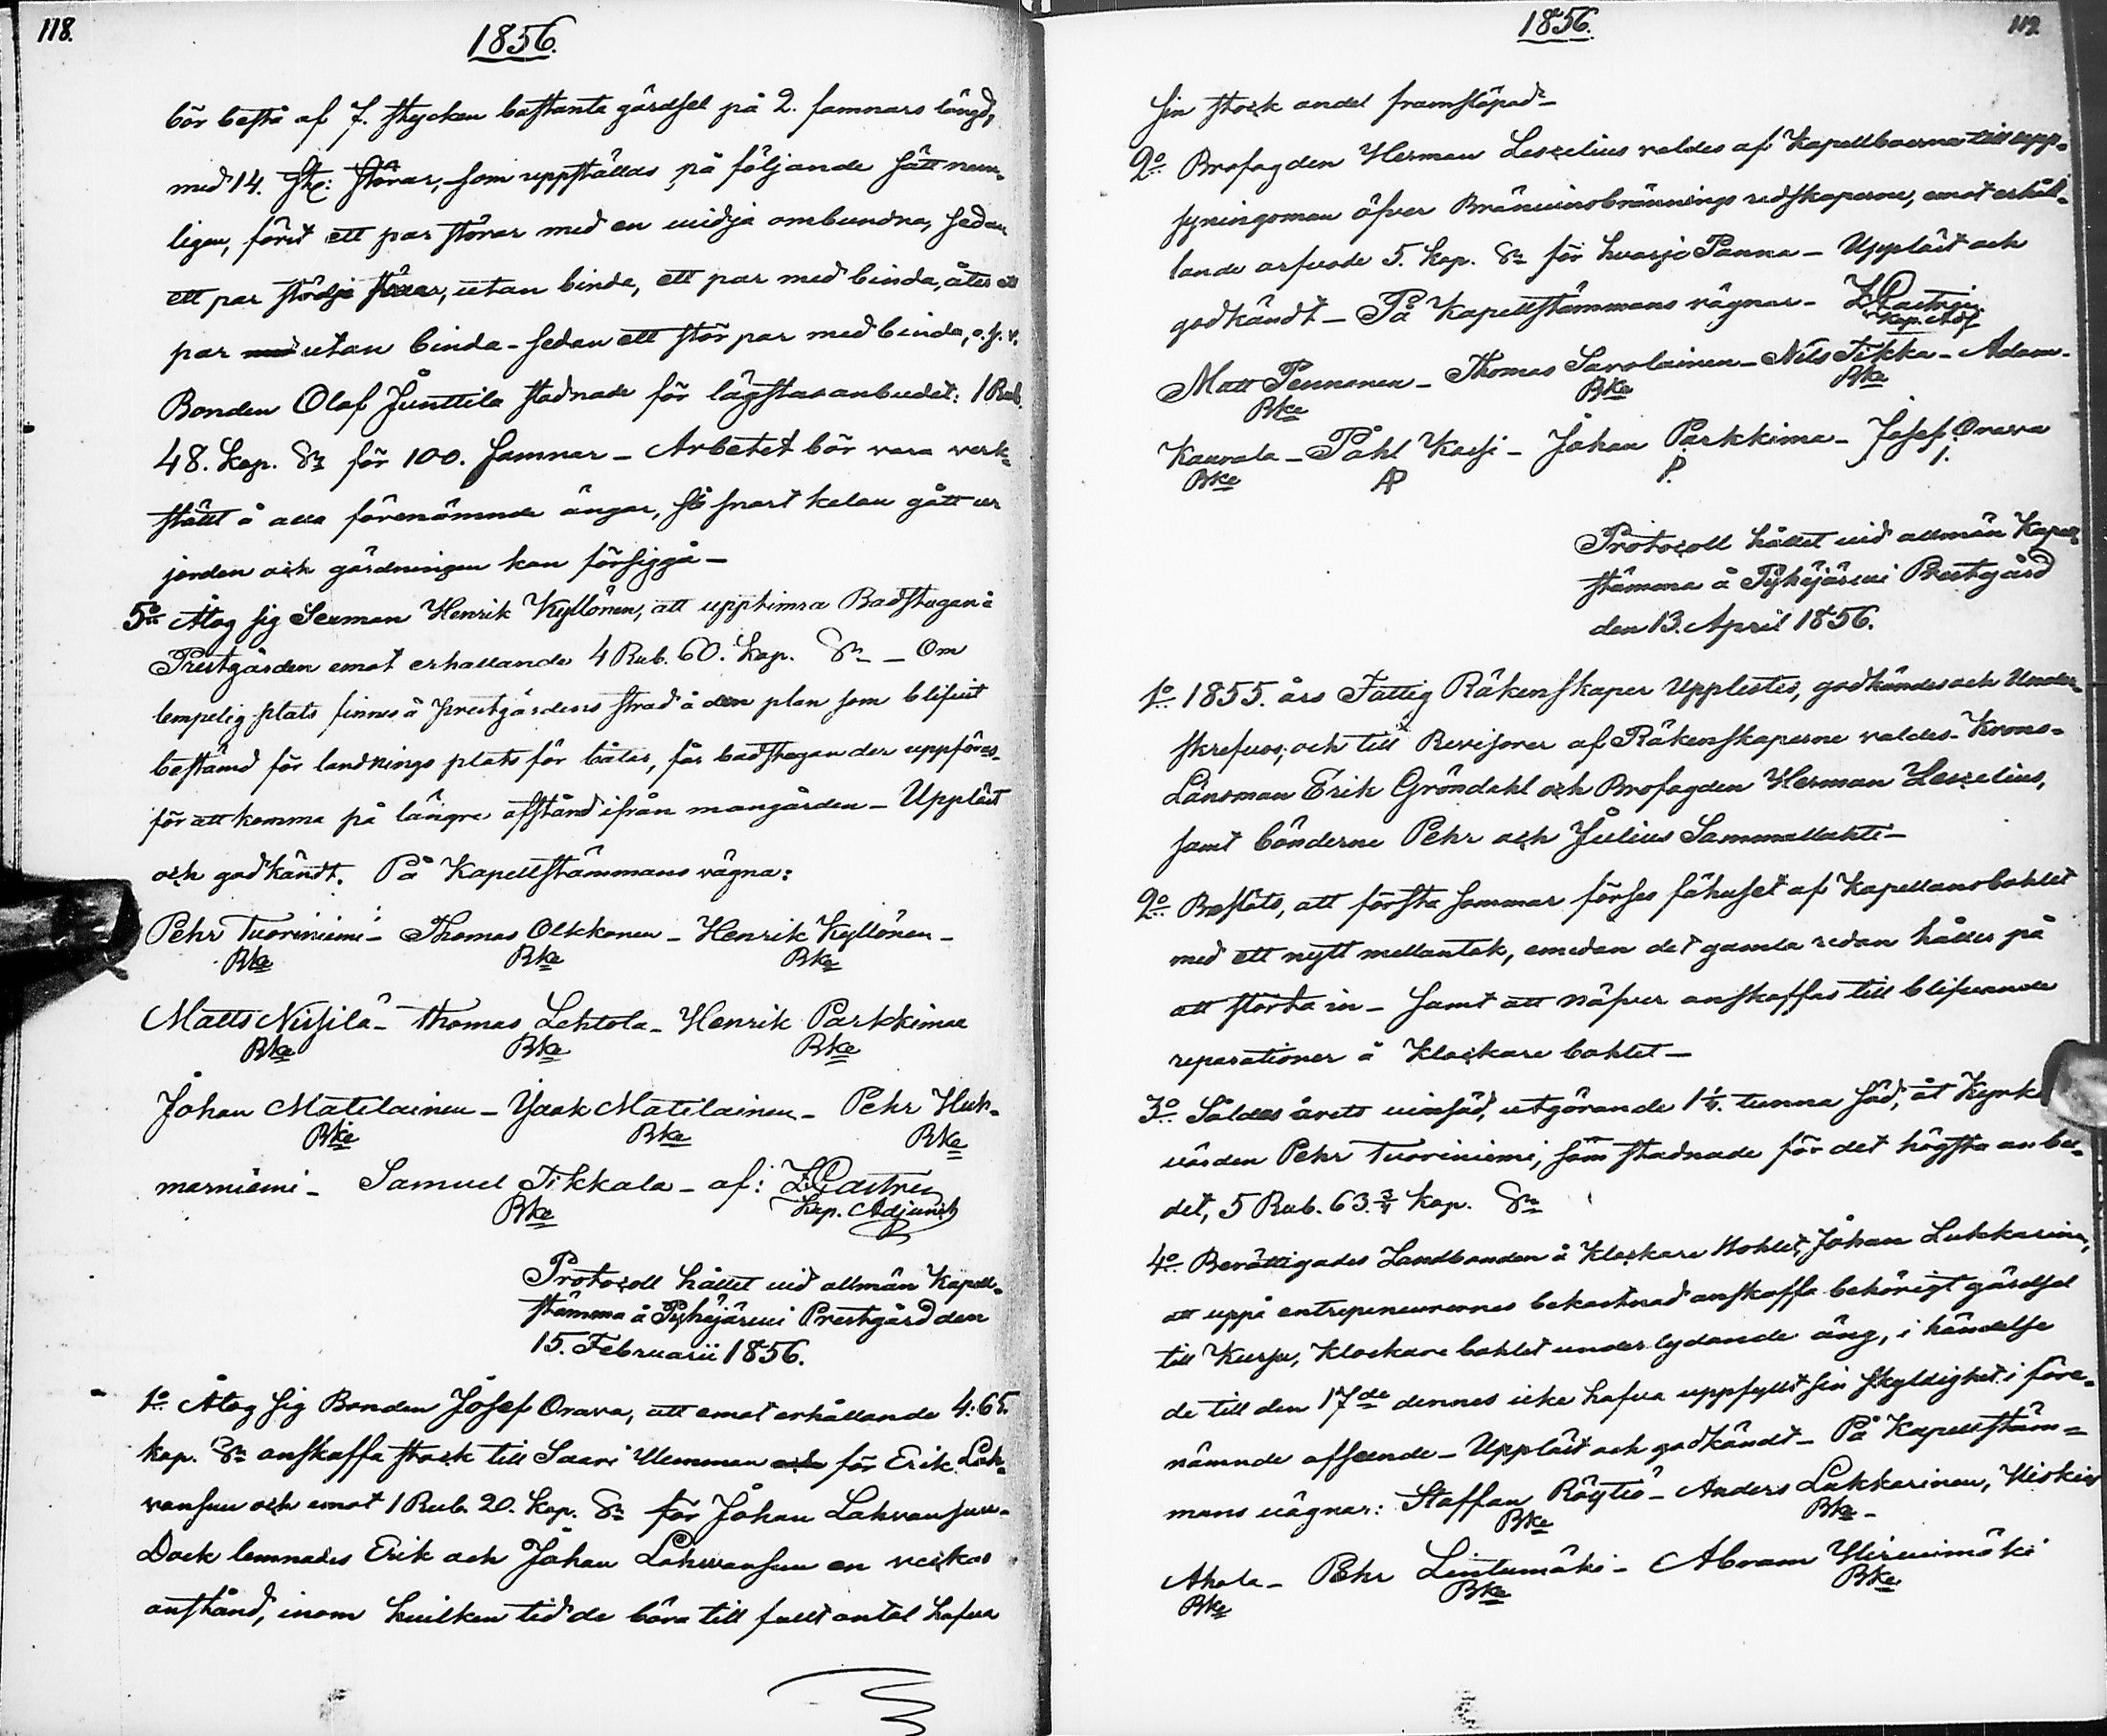 118.
1856.
bör bestå af 7. stycken bastanta gärdsel på 2. famnars längd,
med 14. st: störar, som uppställas på följande sätt nem-
ligen, först ett par störar med en vidja ombundna, sedan
ett par stödje störar, utan binda, ett par med binda, åter ett
par med utan binda - sedan ett stör par med binda, o.s.v.
Bonden Olof Junttila stadnade för lägsta anbudet: 1 Rub.
48. kop. Sr för 100. famnar - Arbetet bör vara verk-
stäldt å alla förenämnde ängar, så snart kelan gått ur
jorden och gärdningen kan försiggå -
5o Åtog sig Sexman Henrik Kyllönen, att upptimra Badstugan å
Prestgården emot erhallande 4 Rub. 60. kop. Sr - Om
lempelig plats finnes å prestgårdens strad å den plan som blifvit
bestämd för landnings plats för båtar, får badstugan der uppföras
för att komma på längre afstånd ifrån mangården - Uppläst
och godkändt. På Kapellstämmans vägna:
Pehr Tuoriniemi - Thomas Olkkonen - Henrik Kyllönen -
Bke Bke Bke
Matts Nissilä - Thomas Lehtola - Henrik Parkkimaa
Bke Bke Bke
Johan Matilainen - Isak Matilainen - Pehr Huh-
Bke Bke Bke
marniemi - Samuel Tikkala - af: Z Castrén
Bke Kap. Adjunct
Protocoll hållet vid allmän Kapell-
stämma å Pyhäjärvi Prestgård den
15. Februarii 1856.
1o Åtog sig Bonden Josef Orava, att emot erhållande 4: 65.
kop. Sr anskaffa stock till Saari Ulemman och för Erik Lah-
vansuu och emot 1 Rub. 20. kop. Sr för Johan Lahvansuu -
Dock lemnades Erik och Johan Lahvansuu en veckas
anstånd, inom hvilken tid de böra till fullt antal hafva
1856.
119.
sin stock andel framsläpad -
2o Brofogden Herman Lesselius valdes af Kapellboerne till upp-
syningsman öfver Bränvinsbrännings redskaperne, emot erhål-
lande arfvode 5. kop. Sr för hvarje Panna - Uppläst och
godkändt - På Kapellstämmans vägnar - Z Castrén
Kap. Adj
Matt Pennanen - Thomas Savolainen - Nils Tikka - Adam
Bke Bke Bke
Kauvala - Påhl Karsi - Johan Parkkima - Josef Orava
Bke AP P. I.
Protocoll hållet vid allmän Kapell-
stämma å Pyhäjärvi Prestgård
den 13. April 1856.
1o 1855. års Fattig Räkenskaper Upplestes, godkändes och Under-
skrefvos; och till Revisorer af Räkenskaperne valdes - Krono-
Länsman Erik Gröndahl och Brofogden Herman Lesselius,
samt bönderne Pehr och Julius Sammallahti -
2o Beslöts, att första sommar förses fähuset af Kapellansbohlet
med ett nytt mellantak, emedan det gamla redan håller på
att störta in - Samt att näfver anskaffas till blifvande
reparationer å Klockare bohlet -
3o Såldes årets vinsäd, utgörande 1 1/4. tunna säd, åt Kyrko
värden Pehr Tuoriniemi, som stadnade för det högsta anbu-
det, 5 Rub. 63. 3/4 kop. Sr
4o Berättigades Landbonden å Klockare Bohlet, Johan Lukkarinen,
att uppå entrepeneurernes bekostnad anskaffa behörigt gärdsel
till Kurju, Klockare bohlet underlydande äng, i händelse
de till den 17de dennes icke hafva uppfyllt sin skyldighet i före-
nämnde afseende - Uppläst och godkändt - På Kapellstäm-
mans vägnar: Staffan Röytiö - Anders Lukkarinen, Hiskias
Bke Bke -
Ahola - Pehr Lintumäki - Abram Hirvimäki
Bke Bke Bke